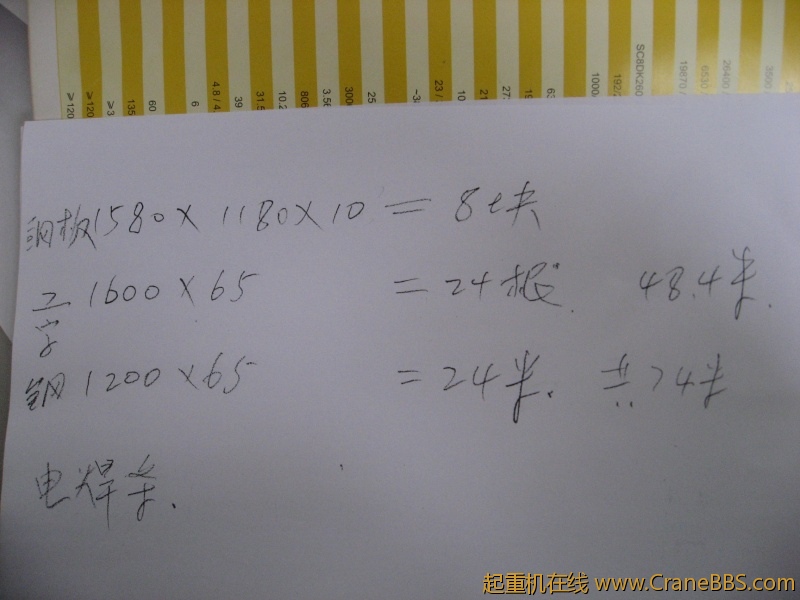 ≥120 ≥120 ≥3 135 60 6 4.8 / 4. 39 31.5 10.2 806 3.56 300 25 ~3 23 / 10 21 27 19 63 1000 192/2 SC8DK260 19870 / 6530 / 26400 3500
钢板1580×1180×10 = 8块
工字 1600×65 = 24根. 48.4米.
钢 1200×65 = 24米. 共74米
电焊条.
起重机在线 www.CraneBBS.com